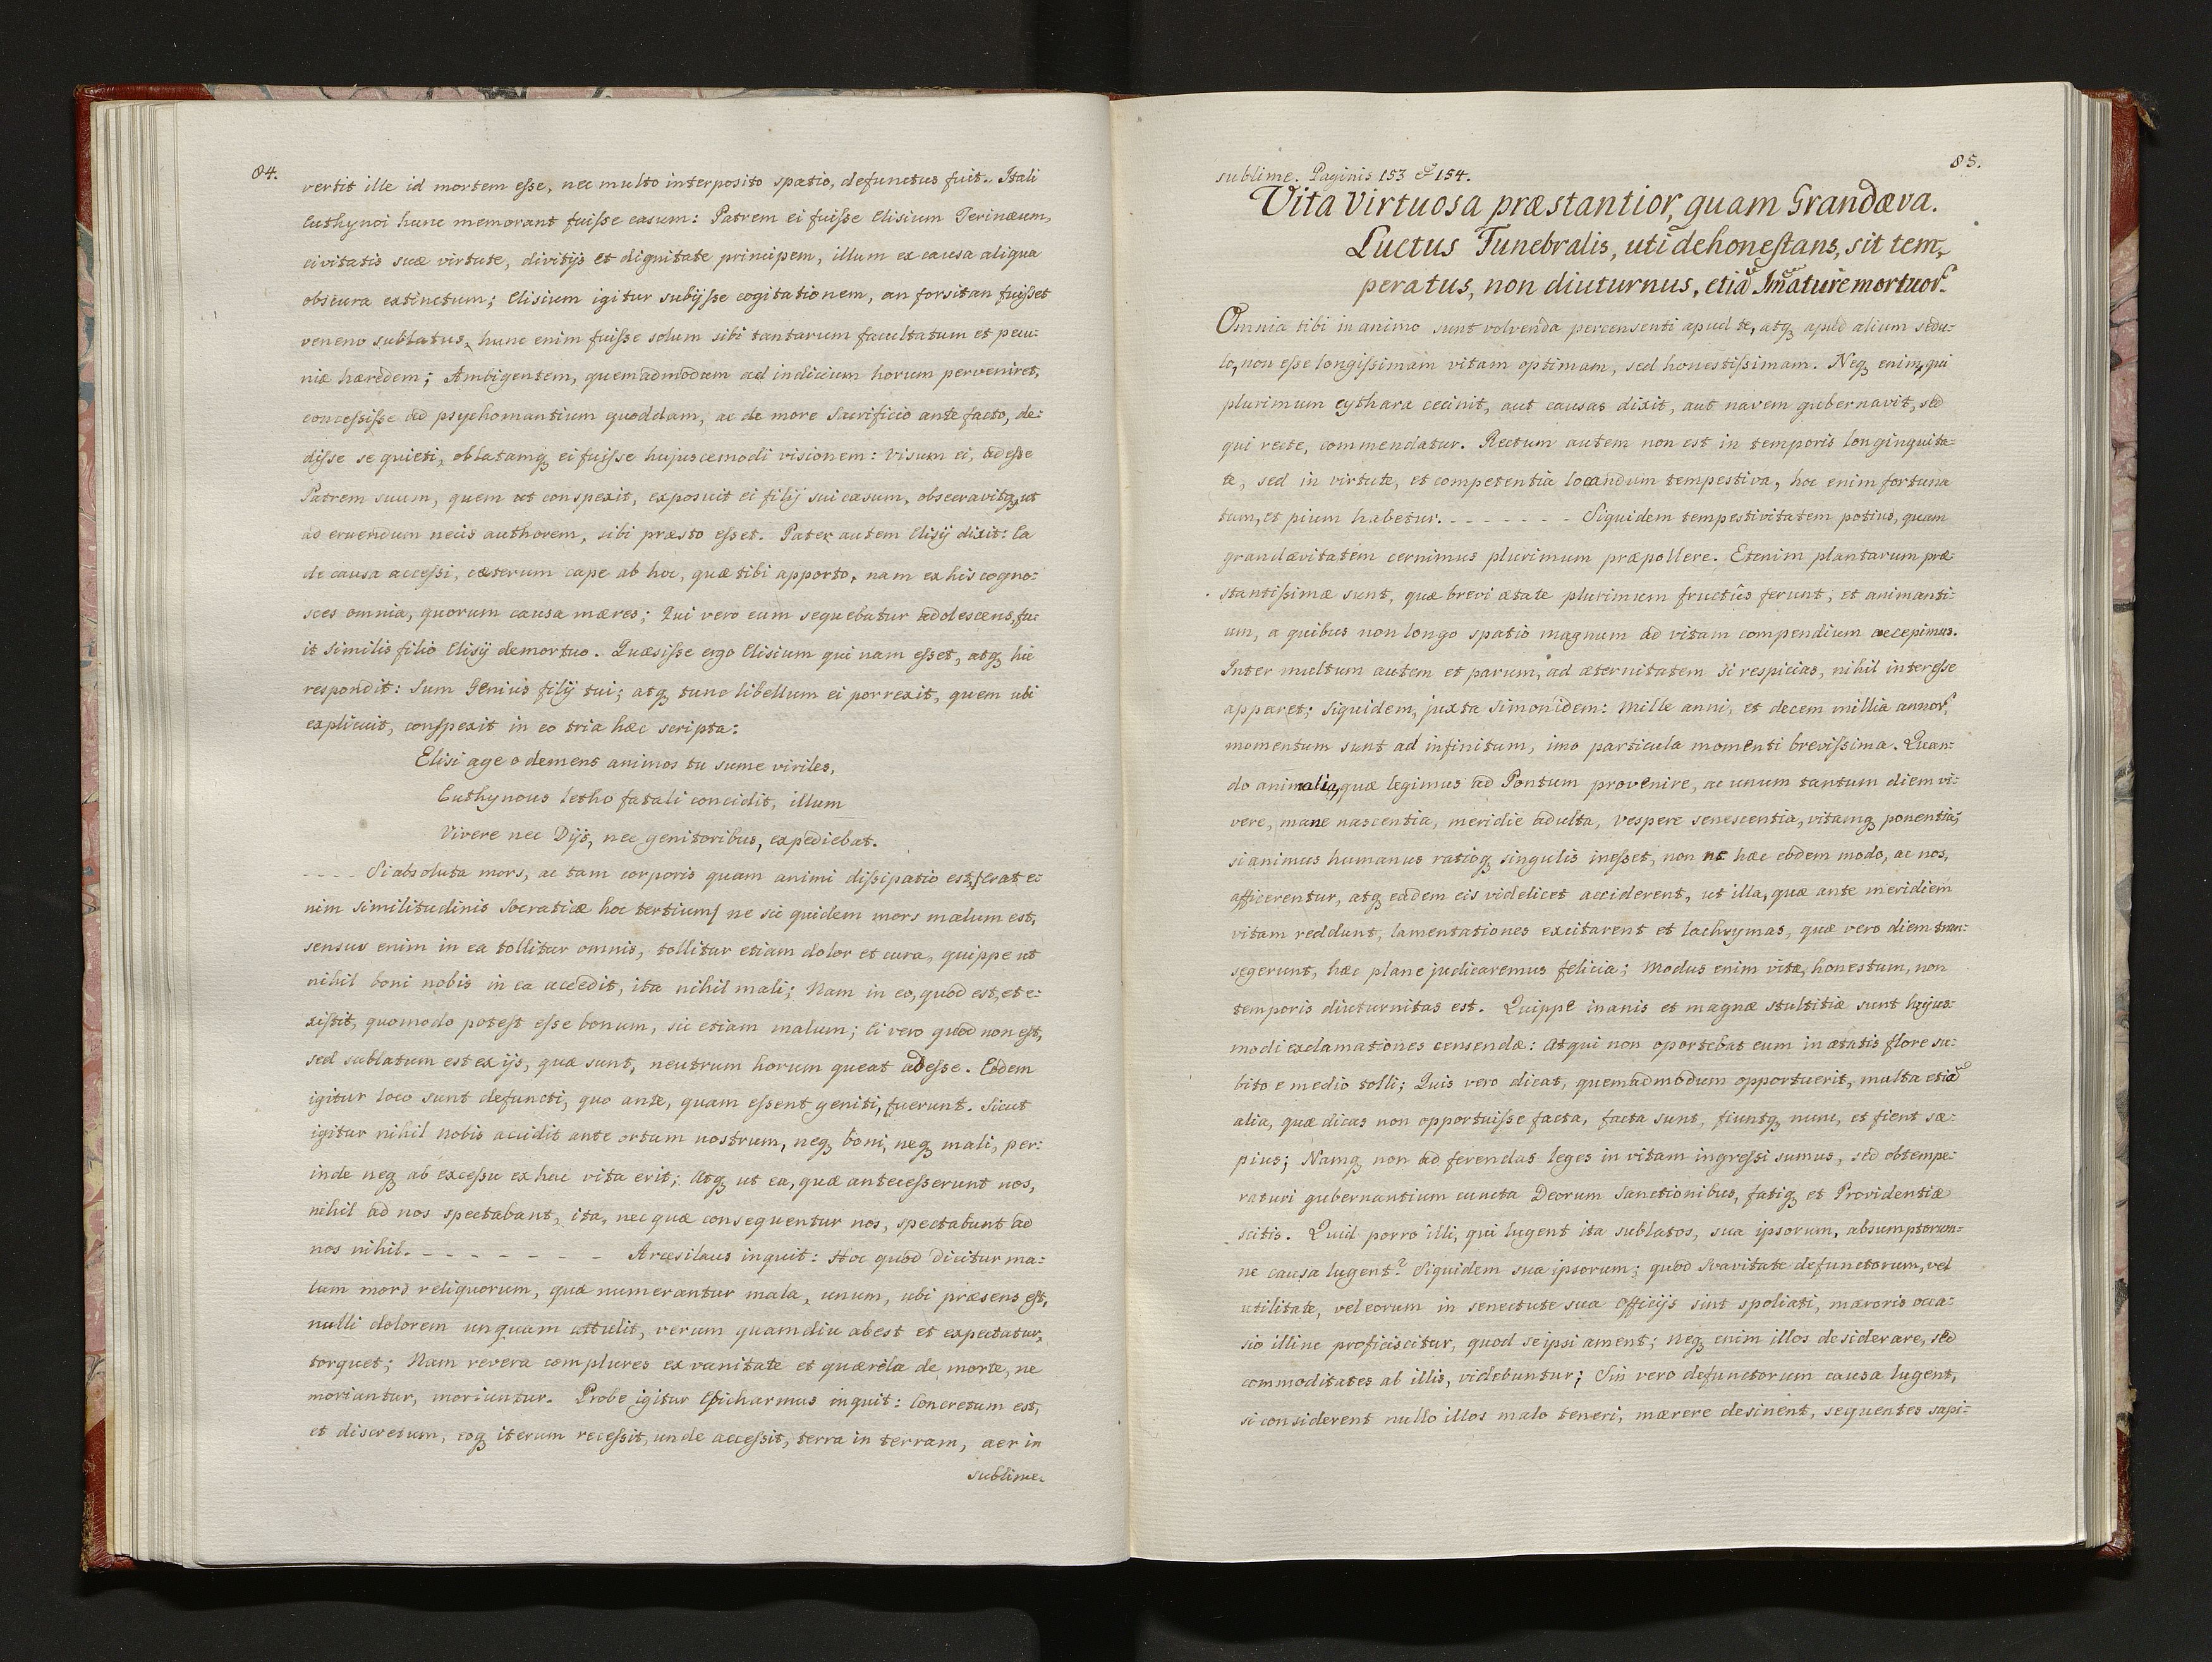 84.
vertit ille id mortem eſse, nec multo interposito spatio, defunctus fuit. Itali
Euthynoi hunc memorant fuiſse casum: Patrem ei fuiſse Elisium Terinæum,
civitatis suæ virtute, divitijs et dignitate principem, illum ex causa aliqua
obscura extinctum; Elisium igitur subijſse cogitationem, an forsitan fuiſset
veneno sublatus, hunc enim fuiſse solum sibi tantarum facultatum et pecu-
niæ hæredem; Ambigentem, quemadmodum ad indicium horum perveniret,
conceſsiſse ad psychomantium quoddam, ac de more Sacrificio ante facto, de-
diſse se quieti, oblatamq ei fuiſse hujuscemodi visionem: Visum ei, adeſse
Patrem suum, quem ut conspexit, exposuit ei filij sui casum, obsecravitq, ut
ad eruendum necis authorem, sibi præsto eſset. Pater autem Elisij dixit: Ea
de causa acceſsi, cæterum cape ab hoc, quæ tibi apporto, nam ex his cogno-
sces omnia, quorum causa mæres; Qui vero eum sequebatur adolescens, fu-
it similis filio Elisij demortuo. Quæsiſse ergo Elisium qui nam eſset, atq hic
respondit: Sum Genius filij tui; atq tunc libellum ei porrexit, quem ubi
explicuit, conſpexit in eo tria hæc scripta:
Elisi age o demens animos tu sume viriles,
Euthynous letho fatali concidit, illum
Vivere nec Dijs, nec genitoribus, expediebat.
- - - - Si absoluta mors, ac tam corporis quam animi diſsipatio est, ſ erat e-
nim similitudinis Socraticæ hoc tertium ſ ne sic quidem mors malum est,
sensus enim in ea tollitur omnis, tollitur etiam dolor et cura, quippe ut
nihil boni nobis in ea accedit, ita nihil mali; Nam in eo, quod est, et e-
xiſtit, quomodo poteſt eſse bonum, sic etiam malum; Ei vero quod non eſt,
sed sublatum est ex ijs, quæ sunt, neutrum horum queat adeſse. Eodem
igitur loco sunt defuncti, quo ante, quam eſsent geniti, fuerunt. Sicut
igitur nihil nobis accidit ante ortum nostrum, neq boni, neq mali, per-
inde neq ab exceſsu ex hac vita erit; Atq ut ea, quæ anteceſserunt nos,
nihil ad nos spectabant, ita, nec quæ consequentur nos, spectabunt ad
nos nihil. - - - - - - - Arcesilaus inquit: Hoc quod dicitur ma-
lum mors reliquorum, quæ numerantur mala, unum, ubi præsens eſt,
nulli dolorem unquam attulit, verum quamdiu abest et expectatur,
torquet; Nam revera complures ex vanitate et quærela de morte, ne
moriantur, moriuntur. Probe igitur Epicharmus inquit: Concretum est,
et discretum, eoq iterum receſsit, unde acceſsit, terra in terram, aer in
sublime.
85.
sublime. Paginis 153 & 154.
Vita Virtuosa præstantior, quam Grandæva.
Luctus Funebralis, uti dehoneſtans, sit tem-
peratus, non diuturnus, etiã Imature mortuor.
Omnia tibi in animo sunt volvenda percensenti apud te, atq apud alium sedu-
lo, non eſse longiſsimam vitam optimam, sed honestiſsimam. Neq enim, qui
plurimum cythara cecinit, aut causas dixit, aut navem gubernavit, sed
qui recte, commendatur. Rectum autem non est in temporis longinquita-
te, sed in virtute, et competentia locandum tempestiva, hoc enim fortuna
tum, et pium habetur. - - - - - - - Siquidem tempestivitatem potius, quam
grandævitatem cernimus plurimum præpollere. Etenim plantarum præ-
stantiſsimæ sunt, quæ brevi ætate plurimum fructûs ferunt, et animanti-
um, a quibus non longo spatio magnum ad vitam compendium accepimus.
Inter multum autem et parum, ad æternitatem si respicias, nihil intereſse
apparet; Siquidem, juxta Simonidem: Mille anni, et decem millia annor,
momentum sunt ad infinitum, imo particula momenti breviſsima. Quan-
do animalia, quæ legimus ad Pontum provenire, ac unum tantum diem vi-
vere, mane nascentia, meridie adulta, vespere senescentia, vitamq ponentia,
si animus humanus ratioq singulis ineſset, non ne hæc eodem modo, ac nos,
afficerentur, atq eadem eis videlicet acciderent, ut illa, quæ ante meridiem
vitam reddunt, lamentationes excitarent et lachrymas, quæ vero diem tran-
segerunt, hæc plane judicaremus felicia; Modus enim vitæ, honestum, non
temporis diuturnitas est. Quippe inanis et magnæ stultitiæ sunt hujus-
modi exclamationes censendæ: Atqui non oportebat eum in ætatis flore su-
bito e medio tolli; Quis vero dicat, quemadmodum opportuerit, multa etiã
alia, quæ dicas non opportuiſse facta, facta sunt, fiuntq nunc, et fient sæ-
pius; Namq non ad ferendas leges in vitam ingreſsi sumus, sed obtempe-
raturi gubernantium cuncta Deorum Sanctionibus, fatiq et Providentiæ
scitis. Quid porro illi, qui lugent ita sublatos, sua ipsorum, absumptorum-
ne causa lugent? Siquidem sua ipsorum; quod Svavitate defunctorum, vel
utilitate, vel eorum in senectute sua officijs sint spoliati, mæroris occa-
sio illinc proficiscitur, quod seipsi ament; Neq enim illos desiderare, sed
commoditates ab illis, videbuntur; Sin vero defunctorum causa lugent,
si considerent nullo illos malo teneri, mærere desinent, sequentes sapi-